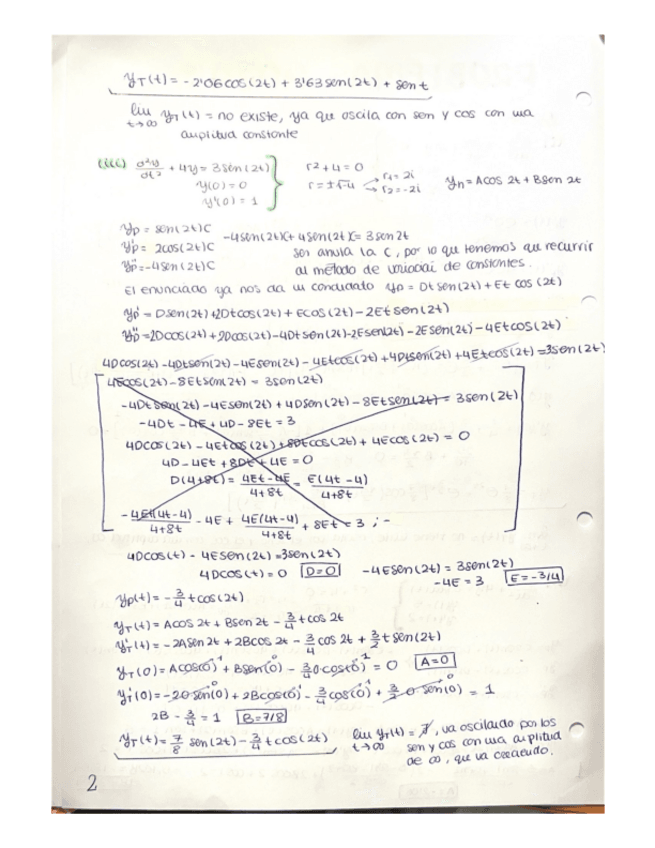 y_T(t) = -2'06cos(2t) + 3'63sen(2t) + sen t
lim y_T(t) = no existe, ya que oscila con sen y cos con una
t→∞
amplitud constante
(iii) d²y/dt² + 4y = 3sen(2t)
y(0) = 0
y'(0) = 1
r² + 4 = 0
r = ±√-4 → r₁ = 2i
→ r₂ = -2i
y_h = Acos 2t + Bsen 2t
y_p = sen(2t)C
y'_p = 2cos(2t)C
y''_p = -4sen(2t)C
-4sen(2t)C + 4sen(2t)C = 3sen 2t
se anula la C, por lo que tenemos que recurrir
al método de de constantes.
El enunciado ya nos da un y_p = Dt sen(2t) + Et cos(2t)
y'_p = Dsen(2t) + 2Dt cos(2t) + Ecos(2t) - 2Et sen(2t)
y''_p = 2Dcos(2t) + 2Dcos(2t) - 4Dt sen(2t) - 2Esen(2t) - 2Esen(2t) - 4Et cos(2t)
4Dcos(2t) - 4Dt sen(2t) - 4Esen(2t) - 4Et cos(2t) + 4Dt sen(2t) + 4Et cos(2t) = 3sen(2t)
4Ecos(2t) - 8Et sen(2t) = 3sen(2t)
-4Dt sen(2t) - 4Esen(2t) + 4Dsen(2t) - 8Et sen(2t) = 3sen(2t)
-4Dt - 4E + 4D - 8Et = 3
4Dcos(2t) - 4Et cos(2t) + 8Dt cos(2t) + 4Ecos(2t) = 0
4D - 4Et + 8Dt + 4E = 0
D(4+8t) = (4Et - 4E)/(4+8t) = E(4t - 4)/(4+8t)
-4Et(4t-4)/(4+8t) - 4E + 4E(4t-4)/(4+8t) + 8Et = 3 ; -
4Dcos(t) - 4Esen(2t) = 3sen(2t)
4Dcos(t) = 0 D=0
-4Esen(2t) = 3sen(2t)
-4E = 3 E = -3/4
y_p(t) = -3/4 t cos(2t)
y_T(t) = Acos 2t + Bsen 2t - 3/4 t cos 2t
y'_T(t) = -2Asen 2t + 2Bcos 2t - 3/4 cos 2t + 3/2 t sen(2t)
y_T(0) = Acos(0)¹ + Bsen(0)⁰ - 3/4 0·cos(0)¹ = 0 A=0
y'_T(0) = -2·0 sen(0)⁰ + 2Bcos(0)¹ - 3/4 cos(0)¹ + 3/2 0 sen(0)⁰ = 1
2B - 3/4 = 1 B = 7/8
y_T(t) = 7/8 sen(2t) - 3/4 t cos(2t)
lim y_T(t) = ∄, va oscilando por los
t→∞
sen y cos con una amplitud
de ∞, que va creciendo.
2